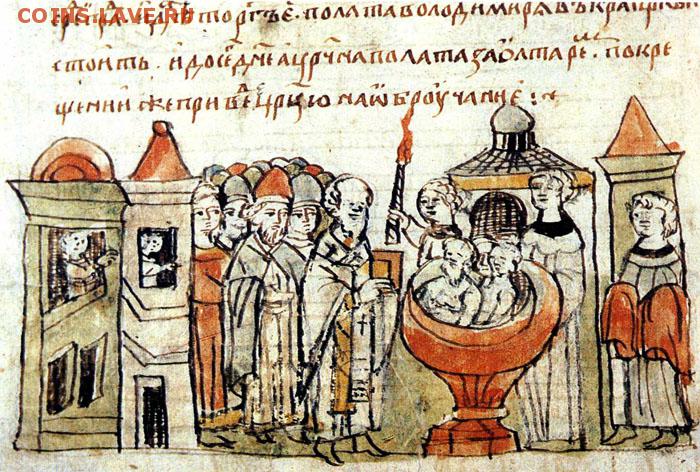 COINS.LAVE.RU
торгъ е. полата володимиря въкраи
стоить. и доседм҃е ацр҃ча полата за ѡлтаремъ. по кре
щении же приве цр҃цю на ѡброучание :